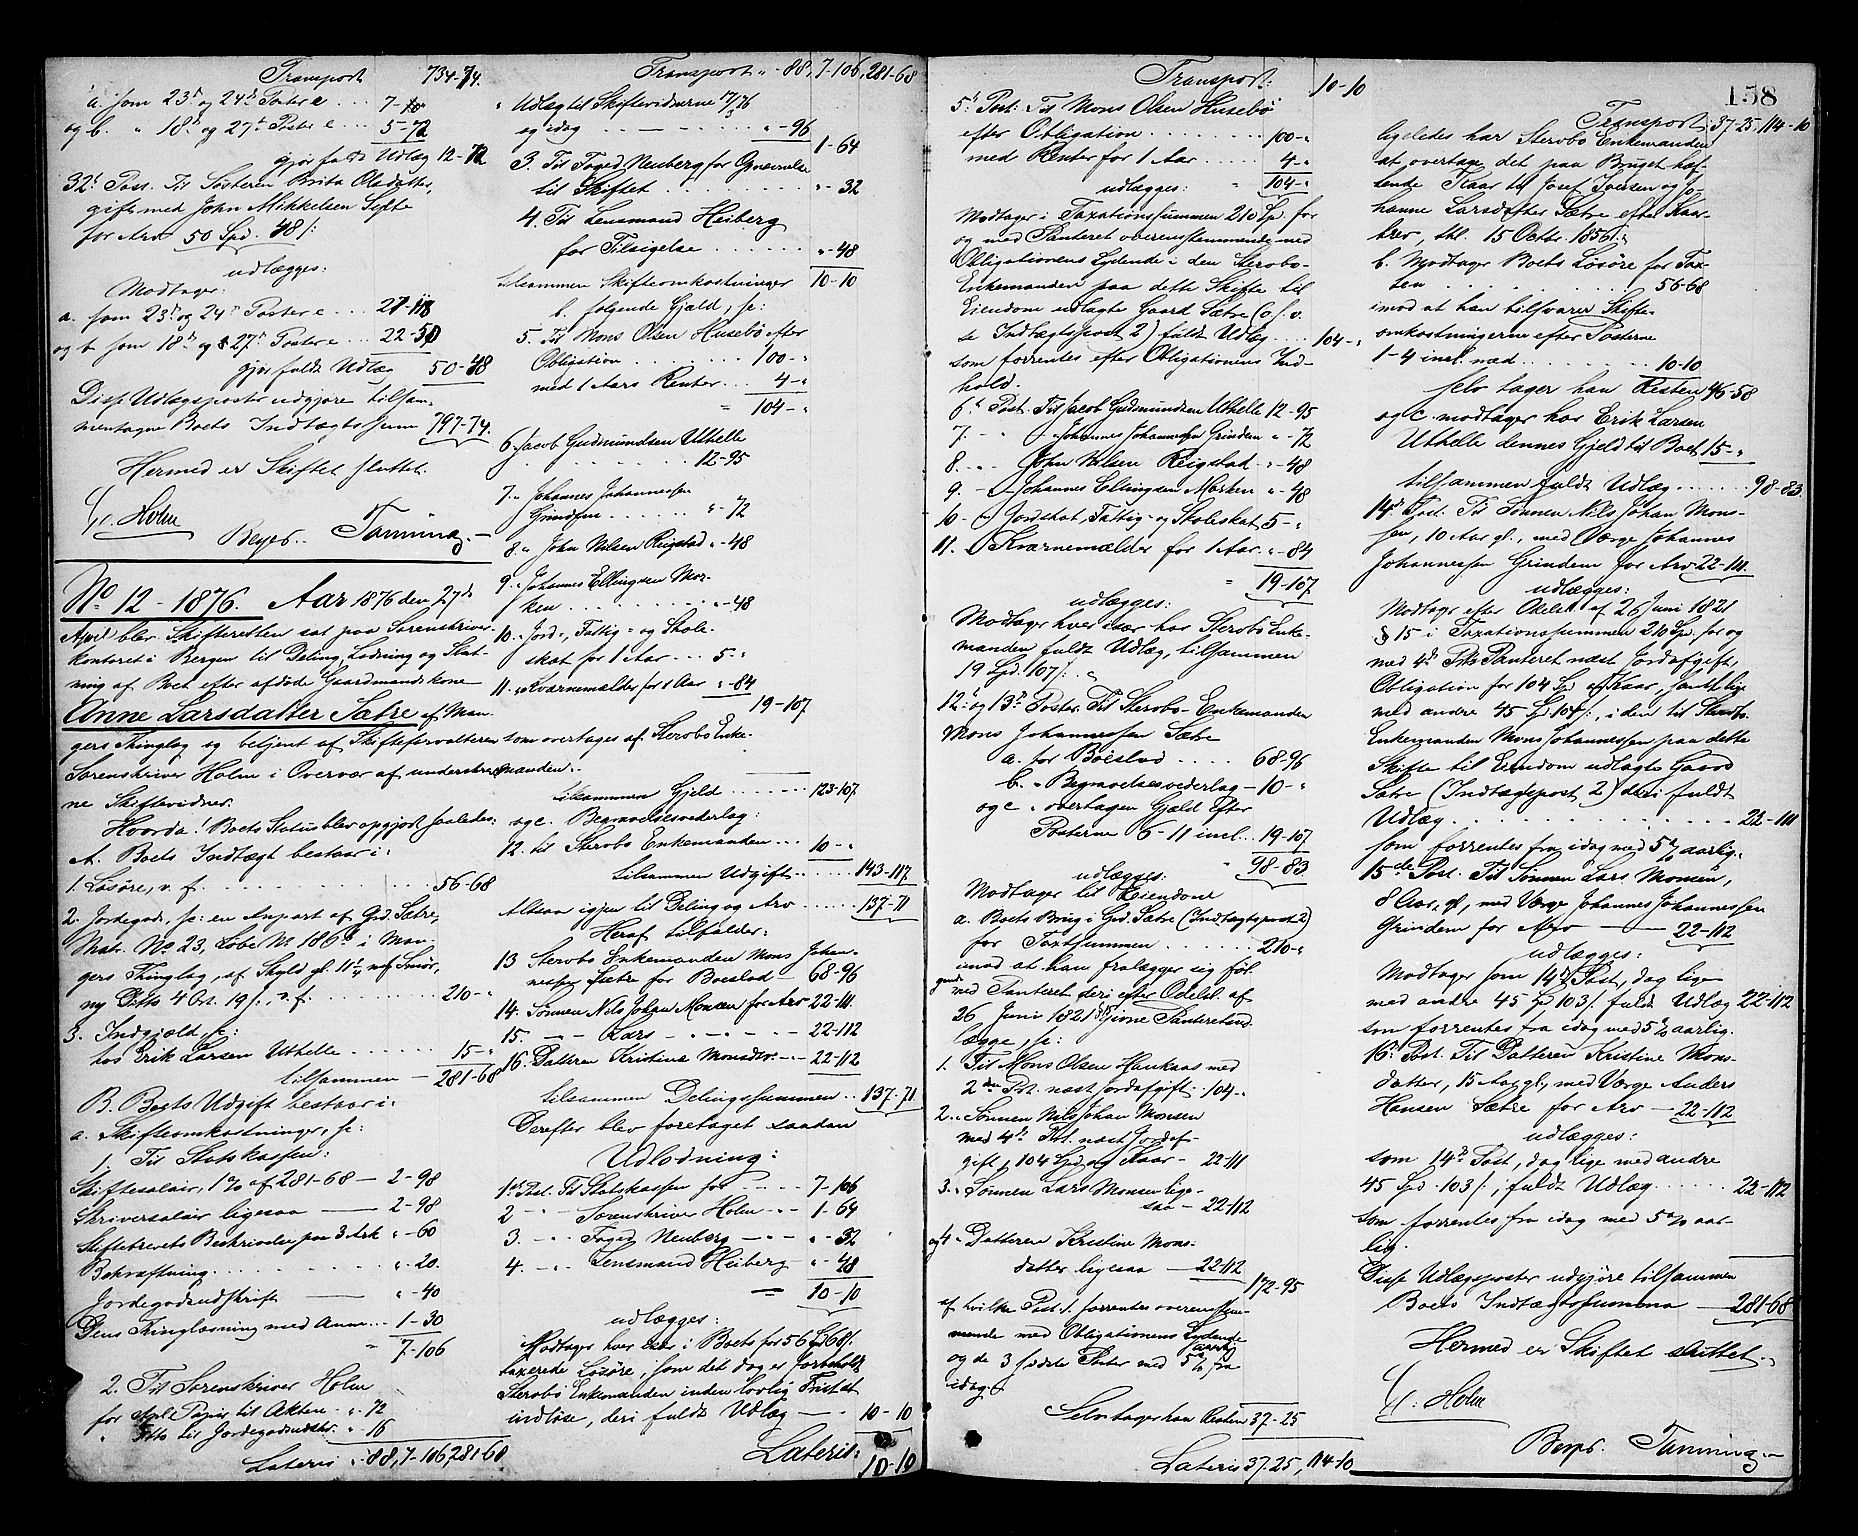 Transport 734-74.
a. som 23d og 24d Poster e ... 7-
og b. " 18d og 27d Poster e ... 5-72
gjør fuldt Udlæg 12-72
32t Post. Til Søsteren Brita Oladatter,
gift med John Mikkelsen Sylte
for Arv 50 Spd. 48/:
udlægges:
Modtager:
a. som 23d og 24d Poster e ...
og b som 18d og 27d Poster e ...
gjør fuldt Udlæg 50-48
Disse Udlægsposter udgjøre tilsam-
mentagne Boets Indtægtssum 797-74.
Hermed er Skiftet sluttet.
Holm
Beyer. Tanning.
No 12 - 1876. Aar 1876 den 27de
April blev Skifteretten sat paa Sorenskriver-
kontoret i Bergen til Deling, Lodning og Slut-
ning af Boet efter afdøde Gaardmandskone
Anne Larsdatter Sætre af Man-
gers Thinglag og betjent af Skifteforvalteren
Sorenskriver Holm i Overvær af underskrev-
ne Skiftevidner.
Hvorda! Boets Status blev opgjort saaledes:
A. Boets Indtægt bestaar i:
1. Løsøre, v. f. ... 56-68
2. Jordegods, s: en Anpart af Gd. Sætre,
Matr. No 23, Løbe No 186 i Man-
gers Thinglag, af Skyld gl.
ny Ditto 4 Ort. 19 /:, v. f. ... 210-"
3. Indgjæld s:
hos Erik Larsen Uthelle ... 15-"
tilsammen - 281-68
B. Boets Udgift bestaar i:
a. Skifteomkostninger, s:
1. Til Statskassen:
Skiftesalair, 1% af 281-68 - 2-98
Skriversalair ligesaa - 2-98
Skiftebrevets Beskrivelse paa 3 Ark "-60
Bekræftning ... "-20.
Jordegodsudskrift - "-40
Dens Thinglæsning med Anm... 1-30
" 7-106
2. Til Sorenskriver Holm
for stpl. Papir til Akten.. "-72
" Ditto til Jordegodsudskr. "-16
Lateris "-88, 7-106, 281-68
Transport "-88, 7-106, 281-68
" Udlæg til Skiftevidnerne
og idag ... "-96
1-64
3. Til Foged Neuberg for Gjenemelse
til Skiftet ... "-32
4. Til Lensmand Heiberg
for Tilsigelse ... "-48
tilsammen Skifteomkostninger 10-10
b. følgende Gjæld, s:
5. Til Mons Olsen Husebø efter
Obligation ... 100-"
med 1 Aars Renter ... 4-"
= 104-"
6. Jacob Gudmundsen Uthelle
... 12-95
7. " Johannes Johannessen
Grindem ... "-72
8. " John Nilsen Reigstad "-48
9. " Johannes Ellingsen Mor-
ken ... "-48
10. " Jord-, Fattig- og Skole-
skat for 1 Aar ... 5-"
11. " Kværnemælder for 1 Aar "-84
19-107
som overtages af Sterbo Enke-
manden.
tilsammen Gjæld ... 123-107
og c. Begravelsesvederlag:
12. til Sterbo Enkemanden ... 10-"
tilsammen Udgift ... 143-117
Altsaa igjen til Deling og Arv ... 137-71
Heraf tilfalder:
13 Sterbo Enkemanden Mons Johan-
nessen Sætre for Boeslod 68-96
14. Sønnen Nils Johan Monsen for Arv 22-111
15. - - Lars - - - - 22-112
16. Datteren Kristine Monsdtr. - - 22-112
tilsammen Delingssummen .. 137-71
Derefter blev foretaget saadan
Udlodning:
1ste Post. Til Statskassen for - 7-106
2 - " - Sorenskriver Holm " - 1-64
3. - " - Foged Neuberg - " - "-32
4. - " - Lensmand Heiberg "-48
= 10-10
udlægges:
Modtager hver især i Boets for 56 Spd 68/:
taxerede Løsøre, som det dog er forbeholdt
Sterbo Enkemanden inden lovlig Frist at
indløse, deri fuldt Udlæg - 10-10
Lateris: 10-10
Transport: 10-10
5t Post. Til Mons Olsen Husebø
efter Obligation ... 100-"
med Renter for 1 Aar ... 4-"
udlægges: " 104-"
Modtager i Taxationssummen 210 Spd. for
og med Panteret overensstemmende med
Obligationens Lydende i den Sterbo-
Enkemanden paa dette Skifte til
Eiendom udlagte Gaard Sætre (o. s. v.
se Indtægtspost 2) fuldt Udlæg ... 104-"
som forrentes efter Obligationens Ind-
hold.
6te Post. Til Jacob Gudmundsen Uthelle 12-95
7. - " - Johannes Johannessen Grindem "-72
8. " John Nilsen Reigstad "-48
9. - " Johannes Ellingsen Morken "-48
10 - " Jordskat, Fattig- og Skoleskat 5-"
11. " Kværnemælder for 1 Aar "-84
" 19-107
udlægges:
Modtager hver især hos Sterbo Enke-
manden fuldt Udlæg, tilsammen
19 Spd. 107/:
12te og 13de Poster. Til Sterbo-Enkemanden
Mons Johannessen Sætre
a. for Boeslod ... 68-96
b. " Begravelsesvederlag - 10-"
og c " overtagen Gjæld efter
Posterne 6-11 incl. 19-107
" 98-83
udlægges:
Modtager til Eiendom
a. Boets Brug i Gd. Sætre (Indtægtspost 2)
for Taxtsummen ... 210-"
imod at han fralægger sig føl-
gende med Panteret deri efter Odelsl. af
26 Juni 1821 givne Panteretud-
lægge, s:
1. Til Mons Olsen Haukaas med
2den Pst. næst Jordafgift: 104-"
2. " Sønnen Nils Johan Monsen
med 4de Pst. næst Jordaf-
gift, 104 Spd og Kaar - 22-111
3. " Sønnen Lars Monsen lige-
saa - 22-112
og 4. " Datteren Kristine Mons-
datter ligesaa - 22-112
172-95
af hvilke Post 1. forrentes overensstem-
mende med Obligationens Lydende
og de 3 sidste Poster med 5% aarlig fra
idag.
Selv tager han Resten 37-25
Lateris 37-25, 114-10
158
Transport 37-25, 114-10
ligeledes har Sterbo Enkemanden
at overtage det paa Bruget hæf-
tende Kaar til Josef Iversen og Jo-
hanne Larsdatter Sætre efter Kaar-
brev, thl. 15 Octbr. 1856.
b. Modtager Boets Løsøre for Tax-
ten ... 56-68
imod at han tilsvarer Skifte-
omkostningerne efter Posterne
1-4 incl. med ... 10-10
selv tager han Resten 46-58
og c. modtager hos Erik Larsen
Uthelle dennes Gjeld til Boet 15-"
tilsammen fuldt Udlæg ... 98-83.
14de Post. Til Sønnen Nils Johan Mons-
sen, 10 Aar gl., med Værge Johannes
Johannessen Grindem for Arv 22-111.
udlægges:
Modtager efter Odelsl. af 26 Juni 1821
§ 15 i Taxationssummen 210 Spd, for og
med 4de Pts Panteret næst Jordafgift,
Obligation for 104 Spd og Kaar, samt lige
med andre 45 Spd 104/:, i den til Sterbo-
Enkemanden Mons Johannessen paa dette
Skifte til Eiendom udlagte Gaard
Sætre (Indtægtspost 2) deri fuldt
Udlæg ... 22-111
som forrentes fra idag med 5% aarlig.
15de Post. Til Sønnen Lars Monsen,
8 Aar gl, med Værge Johannes Johannessen
Grindem for Arv - 22-112
udlægges:
Modtager som 14de Post, dog lige
med andre 45 Spd 103/: fuldt Udlæg 22-112
som forrentes fra idag med 5% aarlig.
16. Post. Til Datteren Kristine Mons-
datter, 15 Aar gl, med Værge Anders
Hansen Sætre for Arv - 22-112
udlægges:
som 14de Post, dog lige med andre
45 Spd. 103/:, fuldt Udlæg ... 22-112
som forrentes fra idag med 5% aar-
lig.
Disse Udlægsposter udgjøre tilsammen
Boets Indtægtssumma - 281-68
Hermed er Skiftet sluttet.
Holm
Beyer. Tanning.